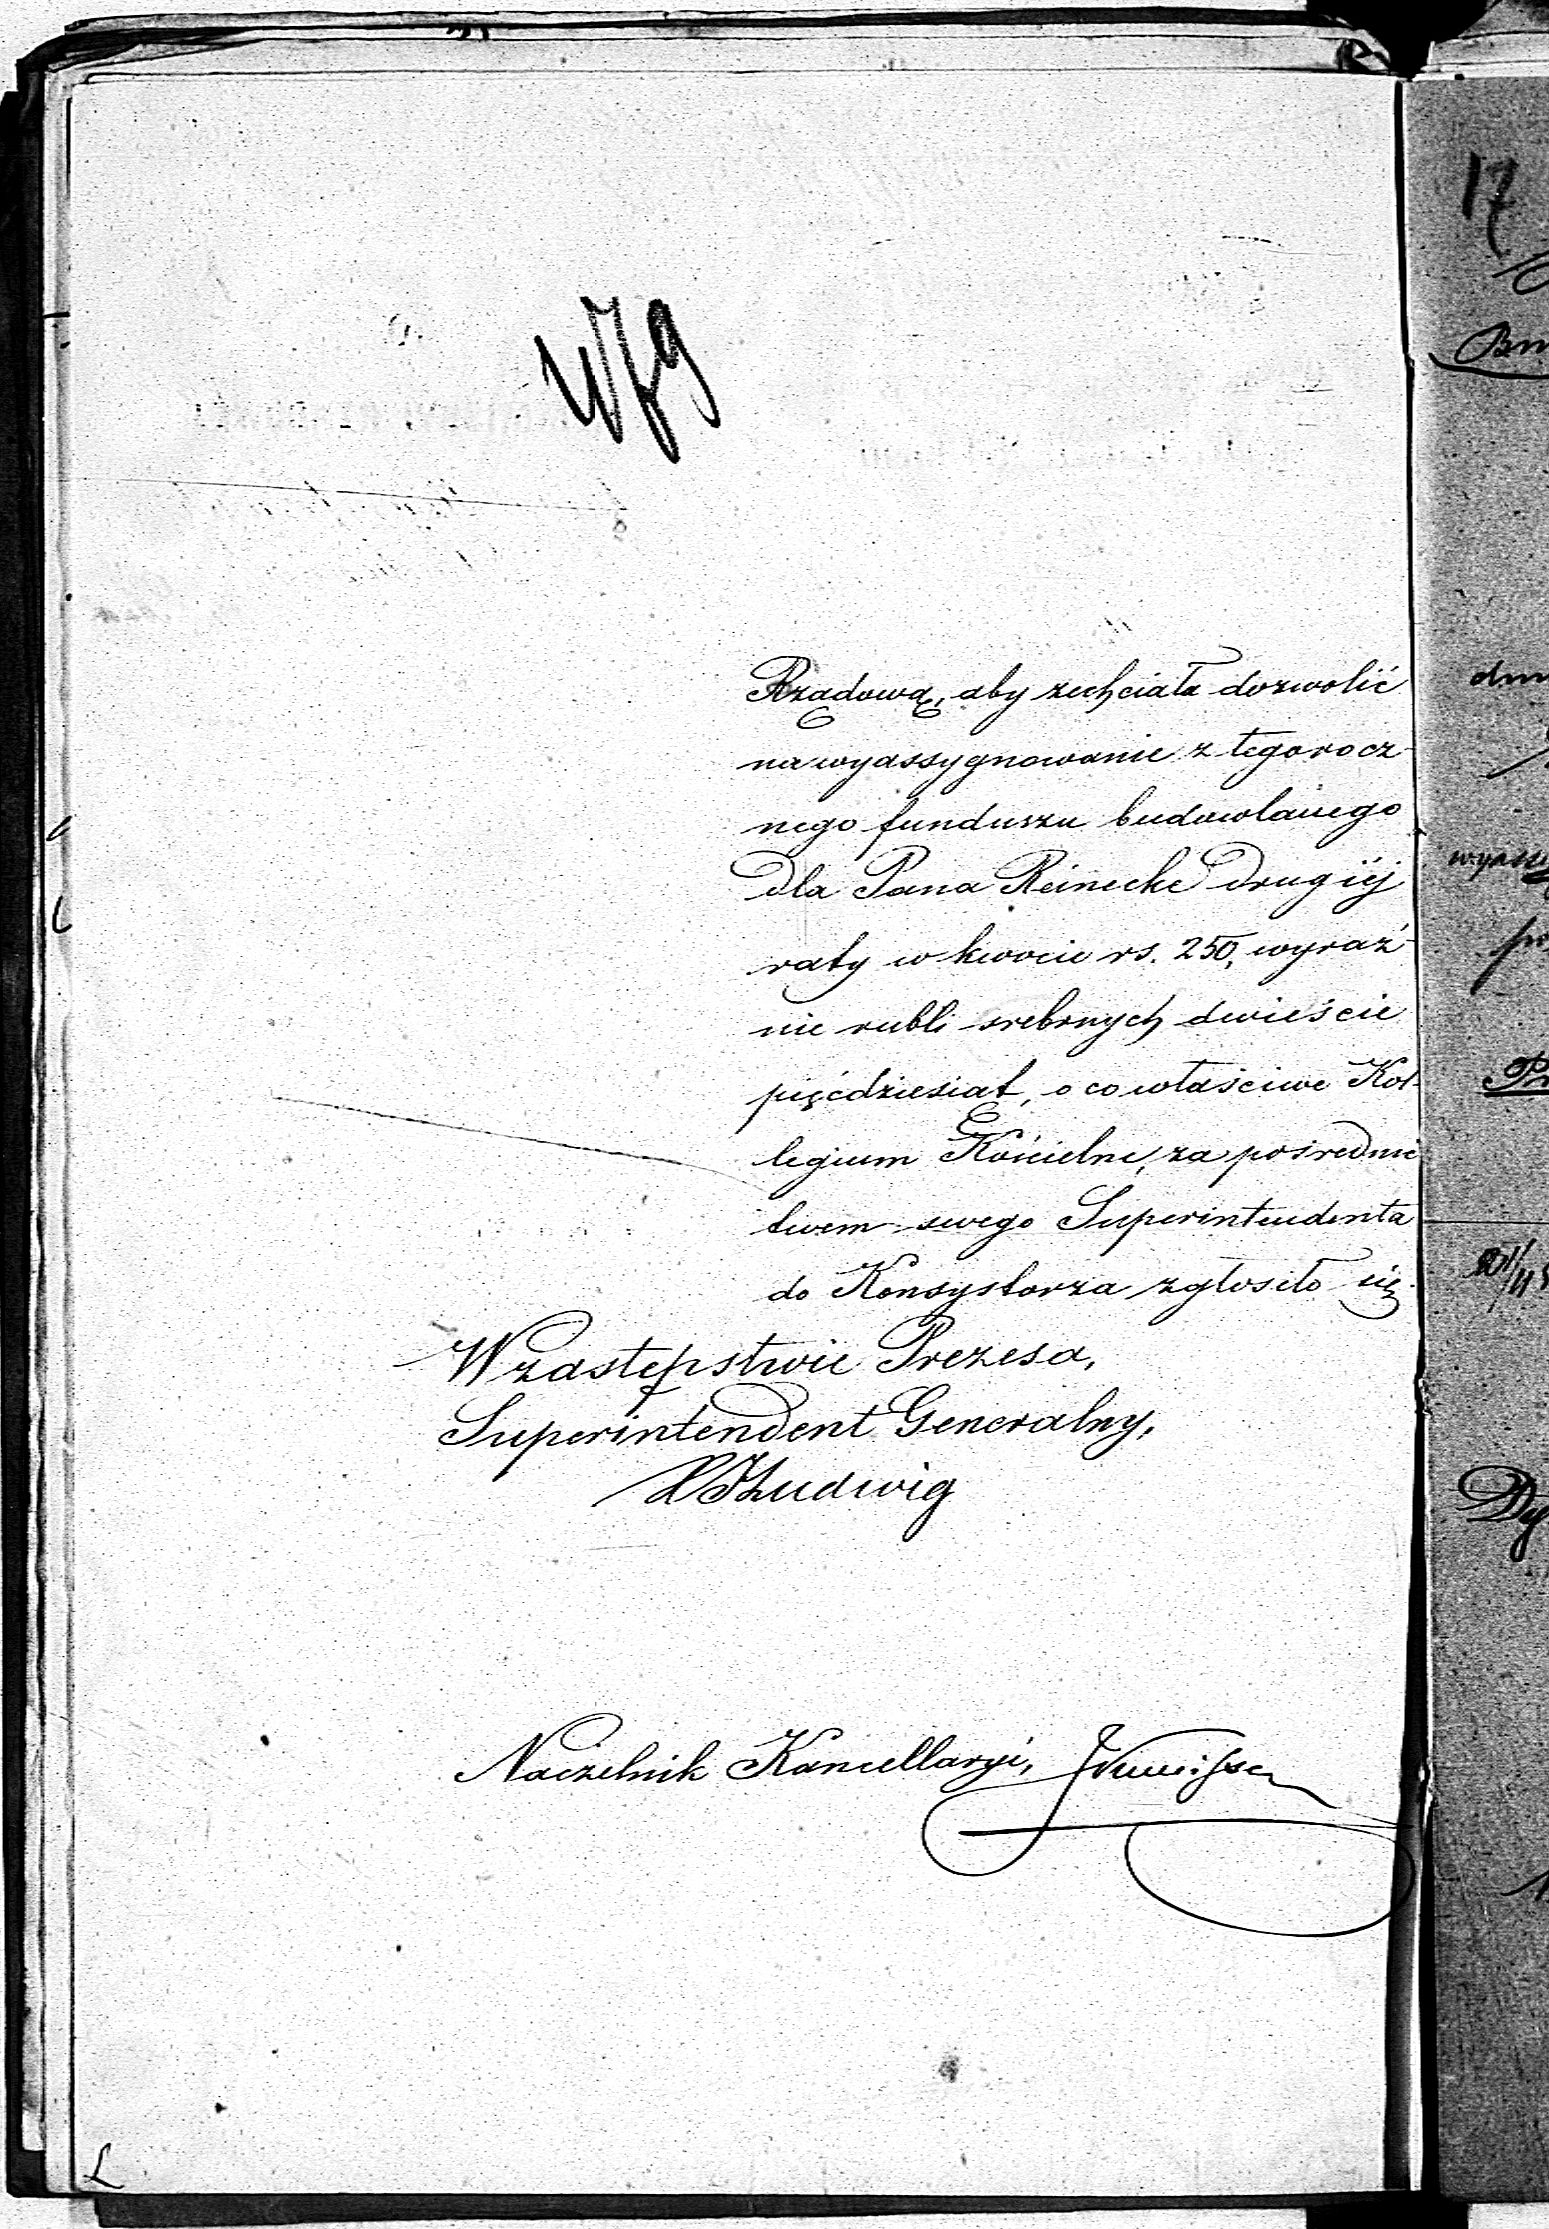 Rządową, aby zechciała dozwolić
na wyassygnowanie z tegorocz-
nego funduszu budowlanego
dla Pana Reinecke drugiéj
raty w kwocie rs. 250, wyraź-
nie rubli srebrnych dwieście
pięćdziesiąt, o co właściwe Kol-
legium Kościelne, za pośrednic
twem swego Superintendenta
do Konsystorza zgłosiło się.
W zastępstwie Prezesa,
Superintendent Generalny,
Ludwig
Naczelnik Kancellaryi,
17
wyass
Dy